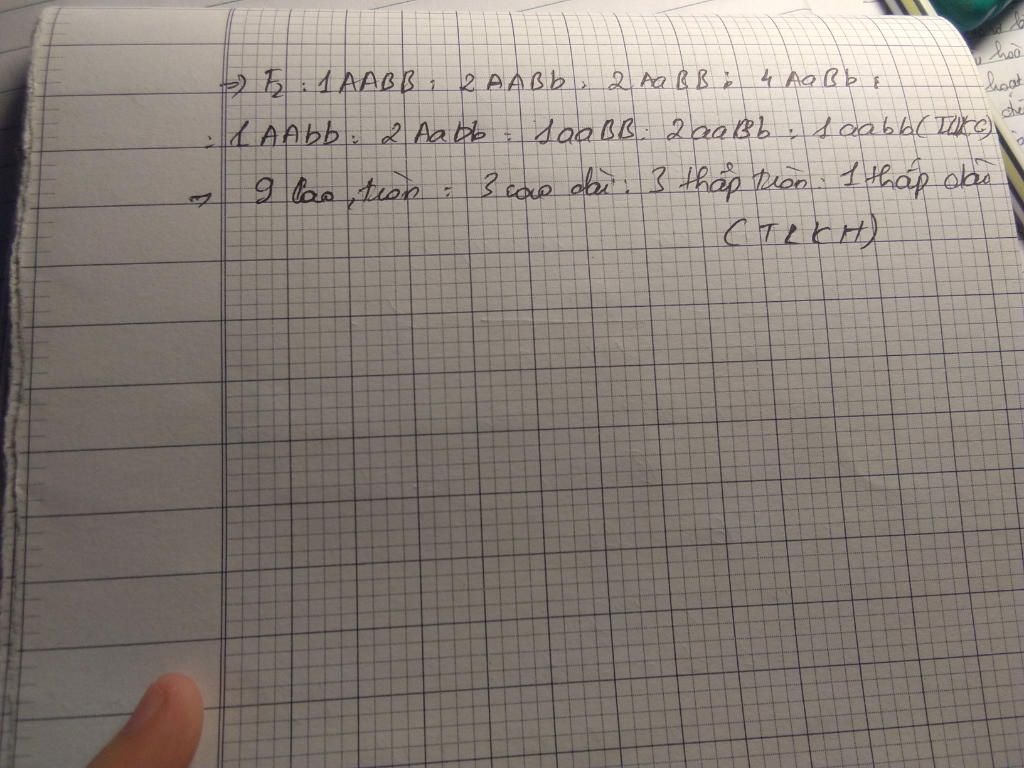 => F2 : 1AABB : 2 AABb : 2 AaBB : 4 AaBb :
: 1AAbb : 2 Aabb : 1aaBB : 2aaBb : 1aabb (TLKG)
→ 9 cao, tròn : 3 cao dài : 3 thấp tròn : 1 thấp dài
(TLKH)
hoat